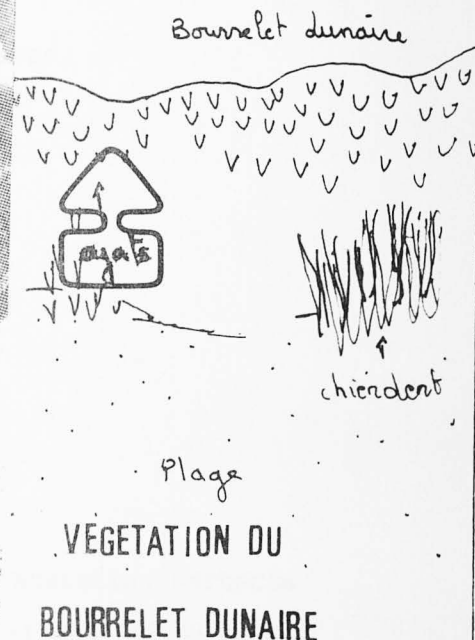 Bourrelet dunaire
oyats
chiendent
Plage
VEGETATION DU
BOURRELET DUNAIRE